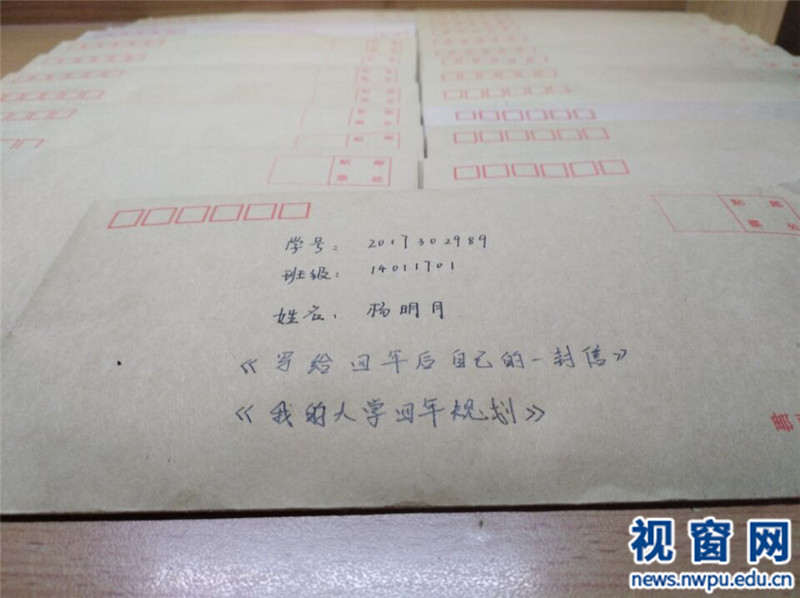 贴 邮
票 处
贴 邮
票 处
学号: 2017302989
班级: 14011701
姓名: 杨明月
《写给四年后自己的一封信》
《我的大学四年规划》
视窗网
news.nwpu.edu.cn